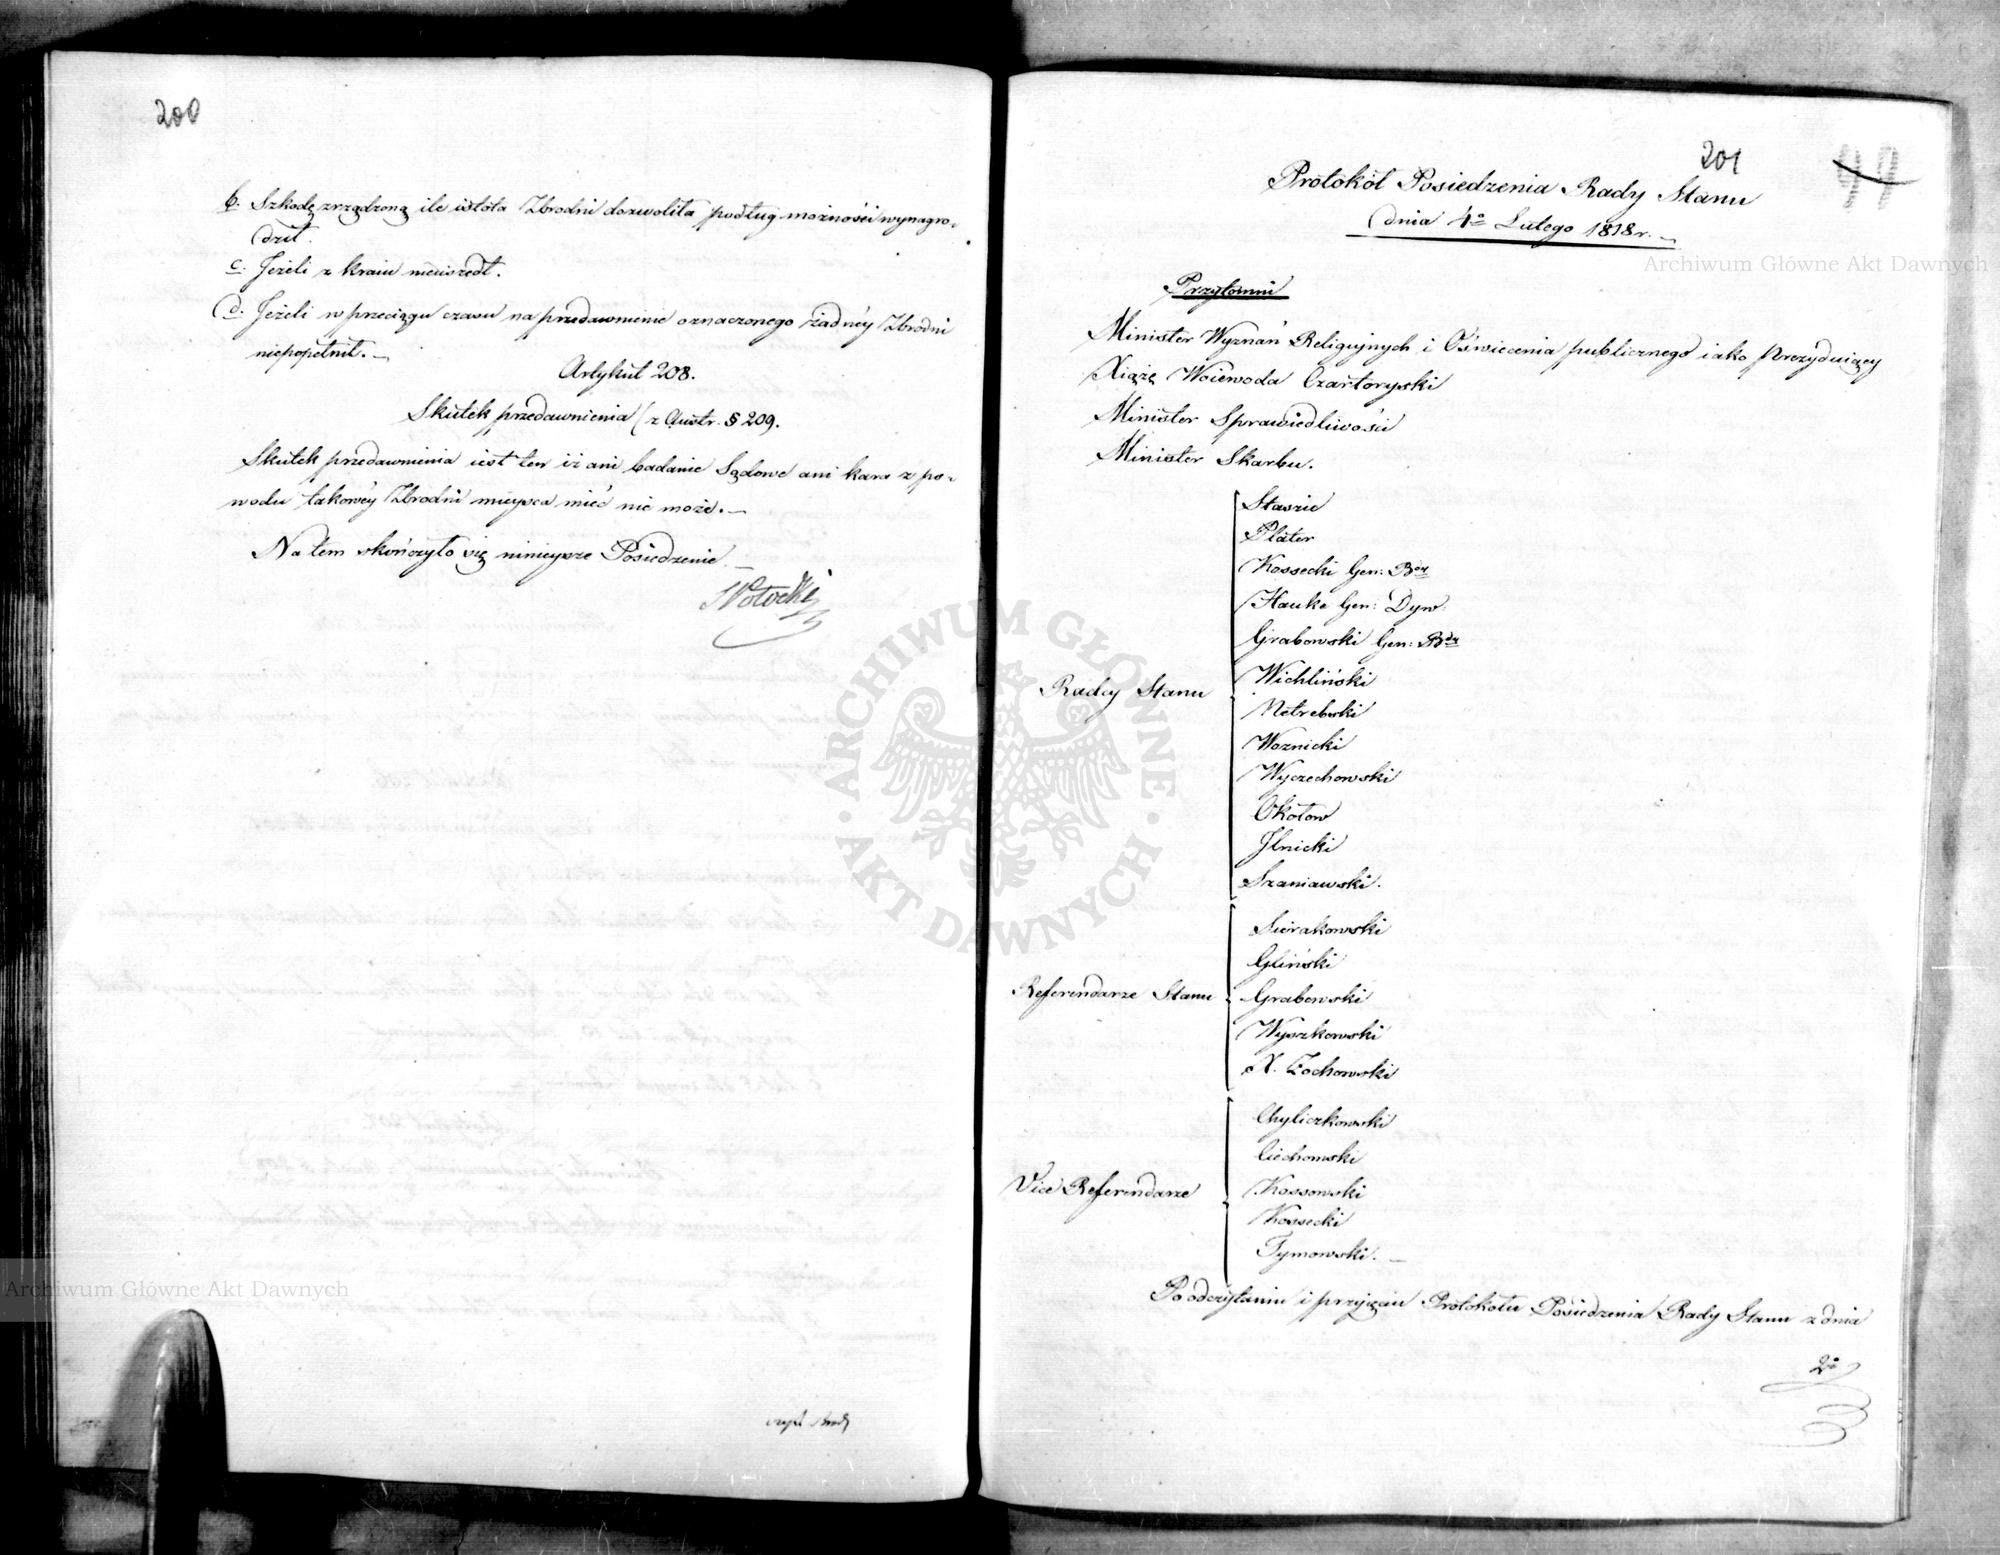 200
b. Szkodę zrządzoną ile istota Zbrodni dozwoliła podług możności wynagro-
dził.
c. Jeżeli z kraiu nieuszedł.
d. Jeżeli w przeciągu czasu na przedawnienie oznaczonego żadnéy Zbrodni
niepopełnił.
Artykuł 208.
Skutek przedawnienia (z Austr. § 209.
Skutek przedawnienia iest ten iż ani badanie Sądowe ani kara z po-
wodu takowéy Zbrodni mieysca mieć nie może.
Na tem skończyło się ninieysze Posiedzenie.
Potocki
201
Protokół Posiedzenia Rady Stanu
dnia 4o Lutego 1818 r.
Przytomni
Minister Wyznań Religijnych i Oświecenia publicznego iako Prezyduiący
Xiążę Woiewoda Czartoryski
Minister Sprawiedliwości
Minister Skarbu.
Radcy Stanu
Staszic
Plater
Kossecki Gen: Bdy
Hauke Gen: Dyw:
Grabowski Gen: Bdy
Wichliński
Netrebski
Woznicki
Wyczechowski
Okołow
Ilnicki
Szaniawski.
Referendarze Stanu
Sierakowski
Gliński
Grabowski
Wyszkowski
X. Żochowski
Vice Referendarze
Chyliczkowski
Ciechomski
Kossowski
Kossecki
Tymowski.
Po odczytaniu i przyjęciu Protokołu Posiedzenia Rady Stanu z dnia
2o
Archiwum Główne Akt Dawnych
Archiwum Główne Akt Dawnych
ARCHIWUM GŁÓWNE AKT DAWNYCH